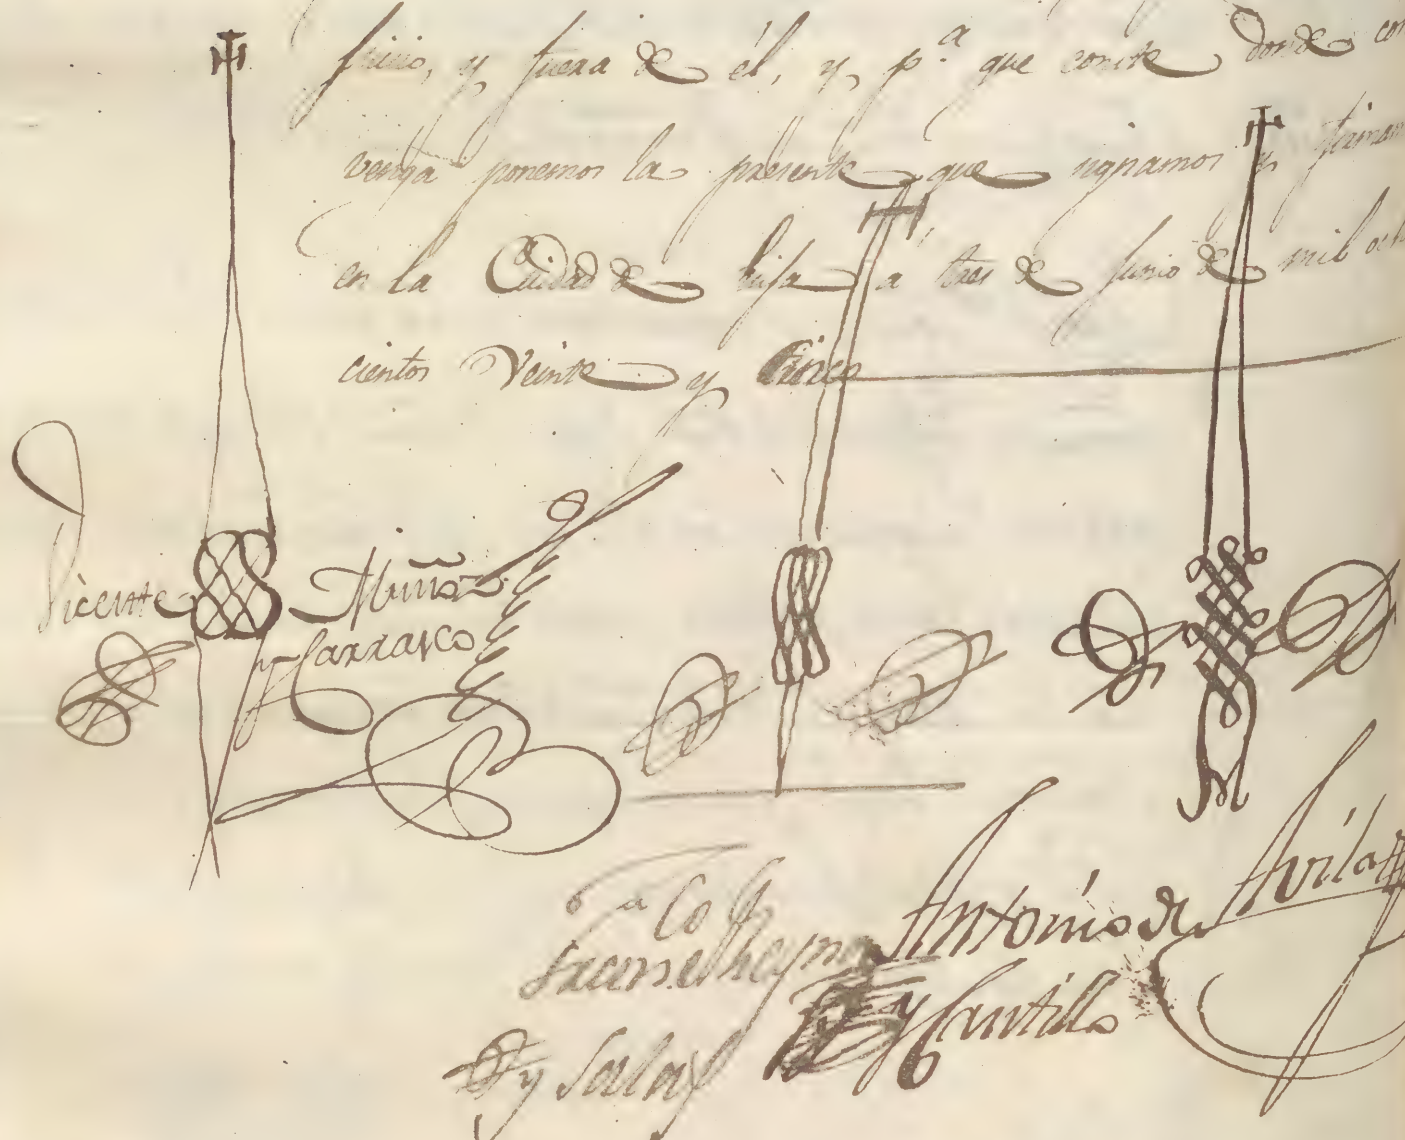 juicio, y fuera de él, y p.ª que conste donde con
venga ponemos la presente que signamos y firmamos
en la Ciudad de a tres de Junio de mil ocho
cientos Veinte y Cinco
Vicente Muñoz
y Carrasco
Antonio de Avila
y Cantillo
y Salas